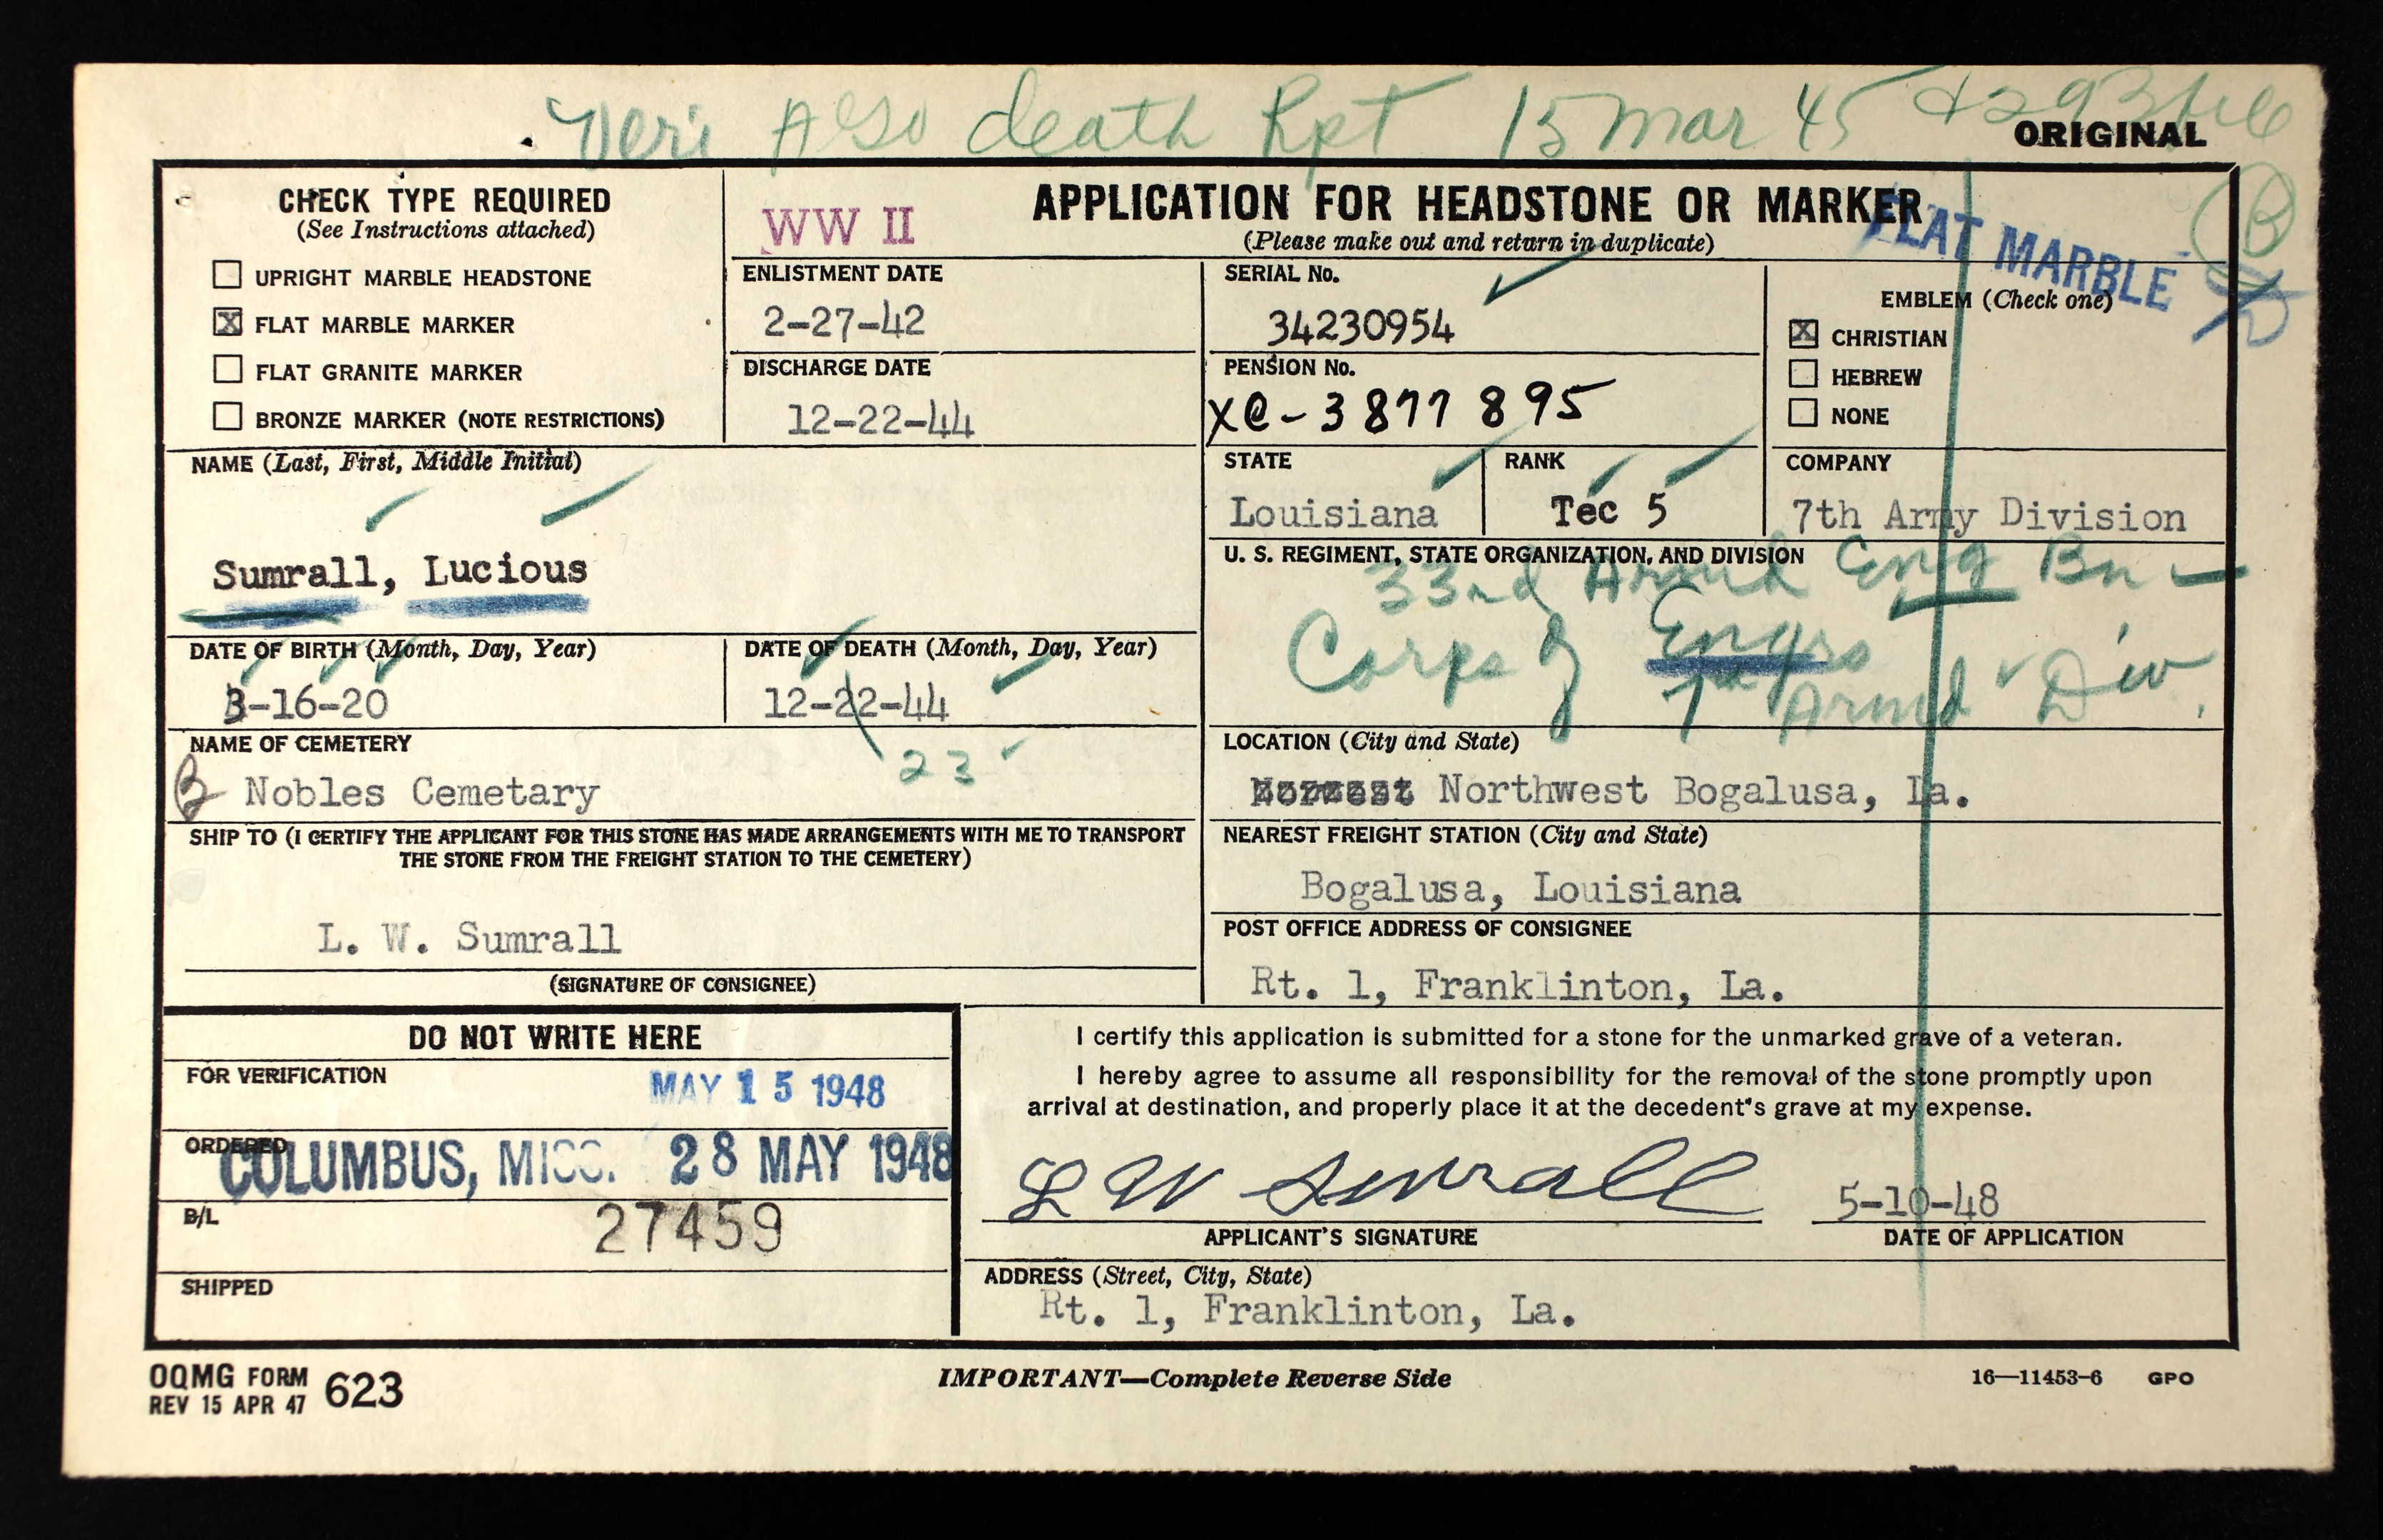 Veri AGO death Rpt 15 Mar 45
ORIGINAL
CHECK TYPE REQUIRED
(See Instructions attached)
UPRIGHT MARBLE HEADSTONE
X FLAT MARBLE MARKER
FLAT GRANITE MARKER
BRONZE MARKER (NOTE RESTRICTIONS)
WW II
APPLICATION FOR HEADSTONE OR MARKER
(Please make out and return in duplicate)
FLAT MARBLE
B
ENLISTMENT DATE
2-27-42
DISCHARGE DATE
12-22-44
SERIAL No.
34230954
PENSION No.
XC-3877895
EMBLEM (Check one)
X CHRISTIAN
HEBREW
NONE
NAME (Last, First, Middle Initial)
Sumrall, Lucious
STATE
Louisiana
RANK
Tec 5
COMPANY
7th Army Division
U. S. REGIMENT, STATE ORGANIZATION, AND DIVISION
33rd Armd Eng Bn
Corps of Engrs
7th Armd Div.
DATE OF BIRTH (Month, Day, Year)
3-16-20
DATE OF DEATH (Month, Day, Year)
12-22-44
23
NAME OF CEMETERY
B Nobles Cemetary
LOCATION (City and State)
Northwest Bogalusa, La.
SHIP TO (I CERTIFY THE APPLICANT FOR THIS STONE HAS MADE ARRANGEMENTS WITH ME TO TRANSPORT
THE STONE FROM THE FREIGHT STATION TO THE CEMETERY)
L. W. Sumrall
(SIGNATURE OF CONSIGNEE)
NEAREST FREIGHT STATION (City and State)
Bogalusa, Louisiana
POST OFFICE ADDRESS OF CONSIGNEE
Rt. 1, Franklinton, La.
DO NOT WRITE HERE
FOR VERIFICATION
MAY 15 1948
ORDERED
COLUMBUS, MISS. 28 MAY 1948
B/L
27459
SHIPPED
I certify this application is submitted for a stone for the unmarked grave of a veteran.
I hereby agree to assume all responsibility for the removal of the stone promptly upon
arrival at destination, and properly place it at the decedent's grave at my expense.
L W Sumrall
5-10-48
APPLICANT'S SIGNATURE
DATE OF APPLICATION
ADDRESS (Street, City, State)
Rt. 1, Franklinton, La.
OQMG FORM
REV 15 APR 47 623
IMPORTANT—Complete Reverse Side
16—11453-6 GPO